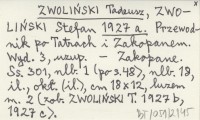 ZWOLIŃSKI Tadeusz, ZWO-
LIŃSKI Stefan 1927 a. Przewod-
nik po Tatrach i Zakopanem.
Wyd. 3, uzup. - Zakopane.
Ss. 301, nlb. 1 (po s. 48), nlb. 18,
il., okł. (il.), cm 18x12, luzem
m. 2 (zob. ZWOLIŃSKI T. 1927 b,
1927 c).